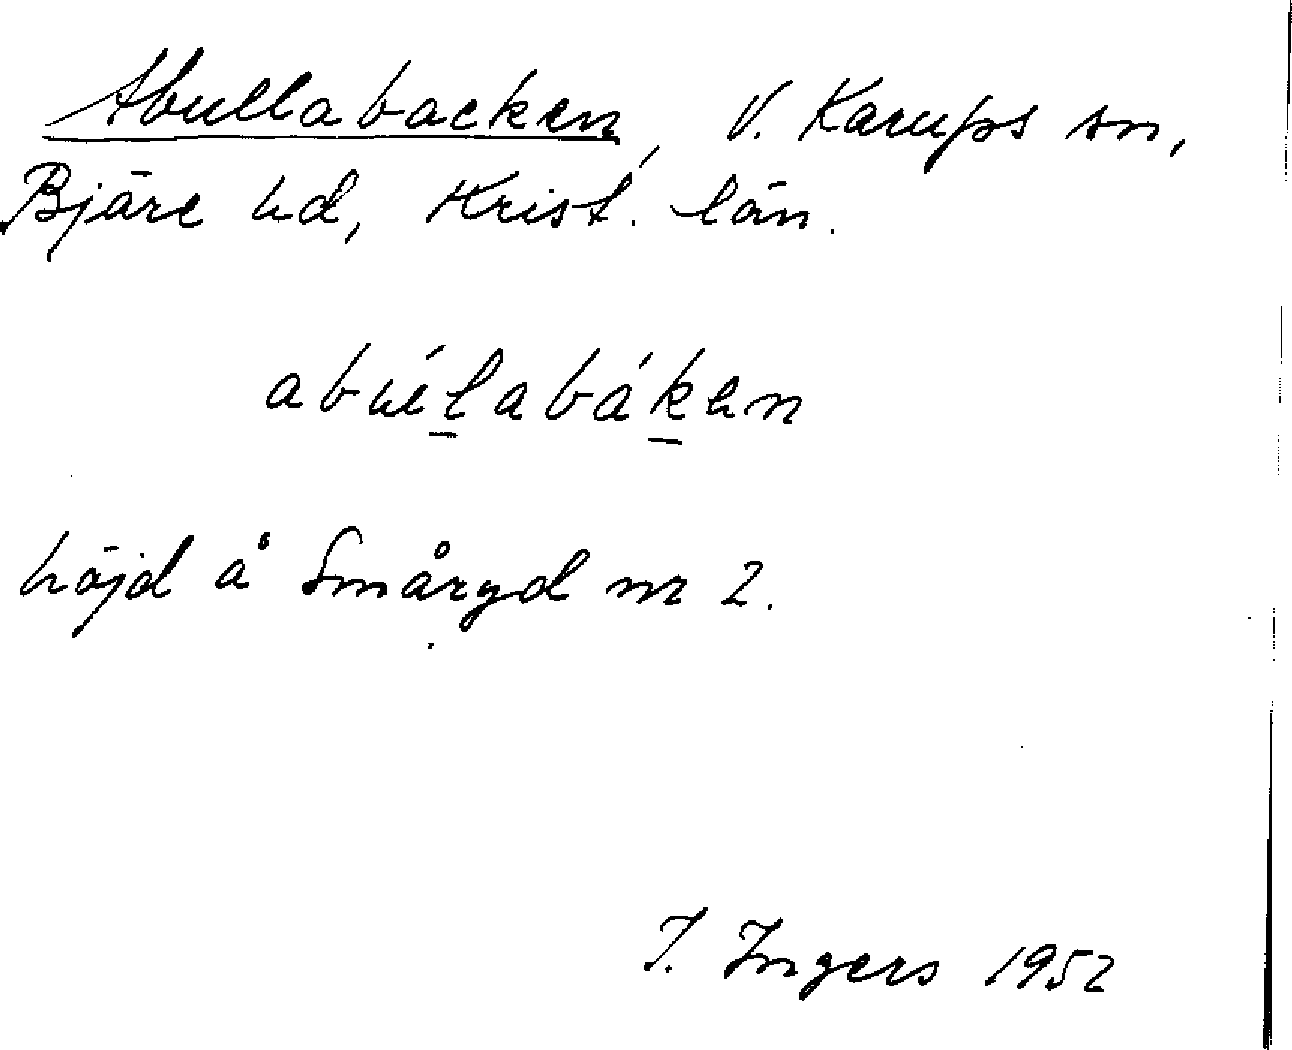 Abullabacken, V. Karups sn,
Bjäre hd, Krist. län.
abúl̠abák̠en
höjd å Småryd nr 2.
I. Ingers 1952